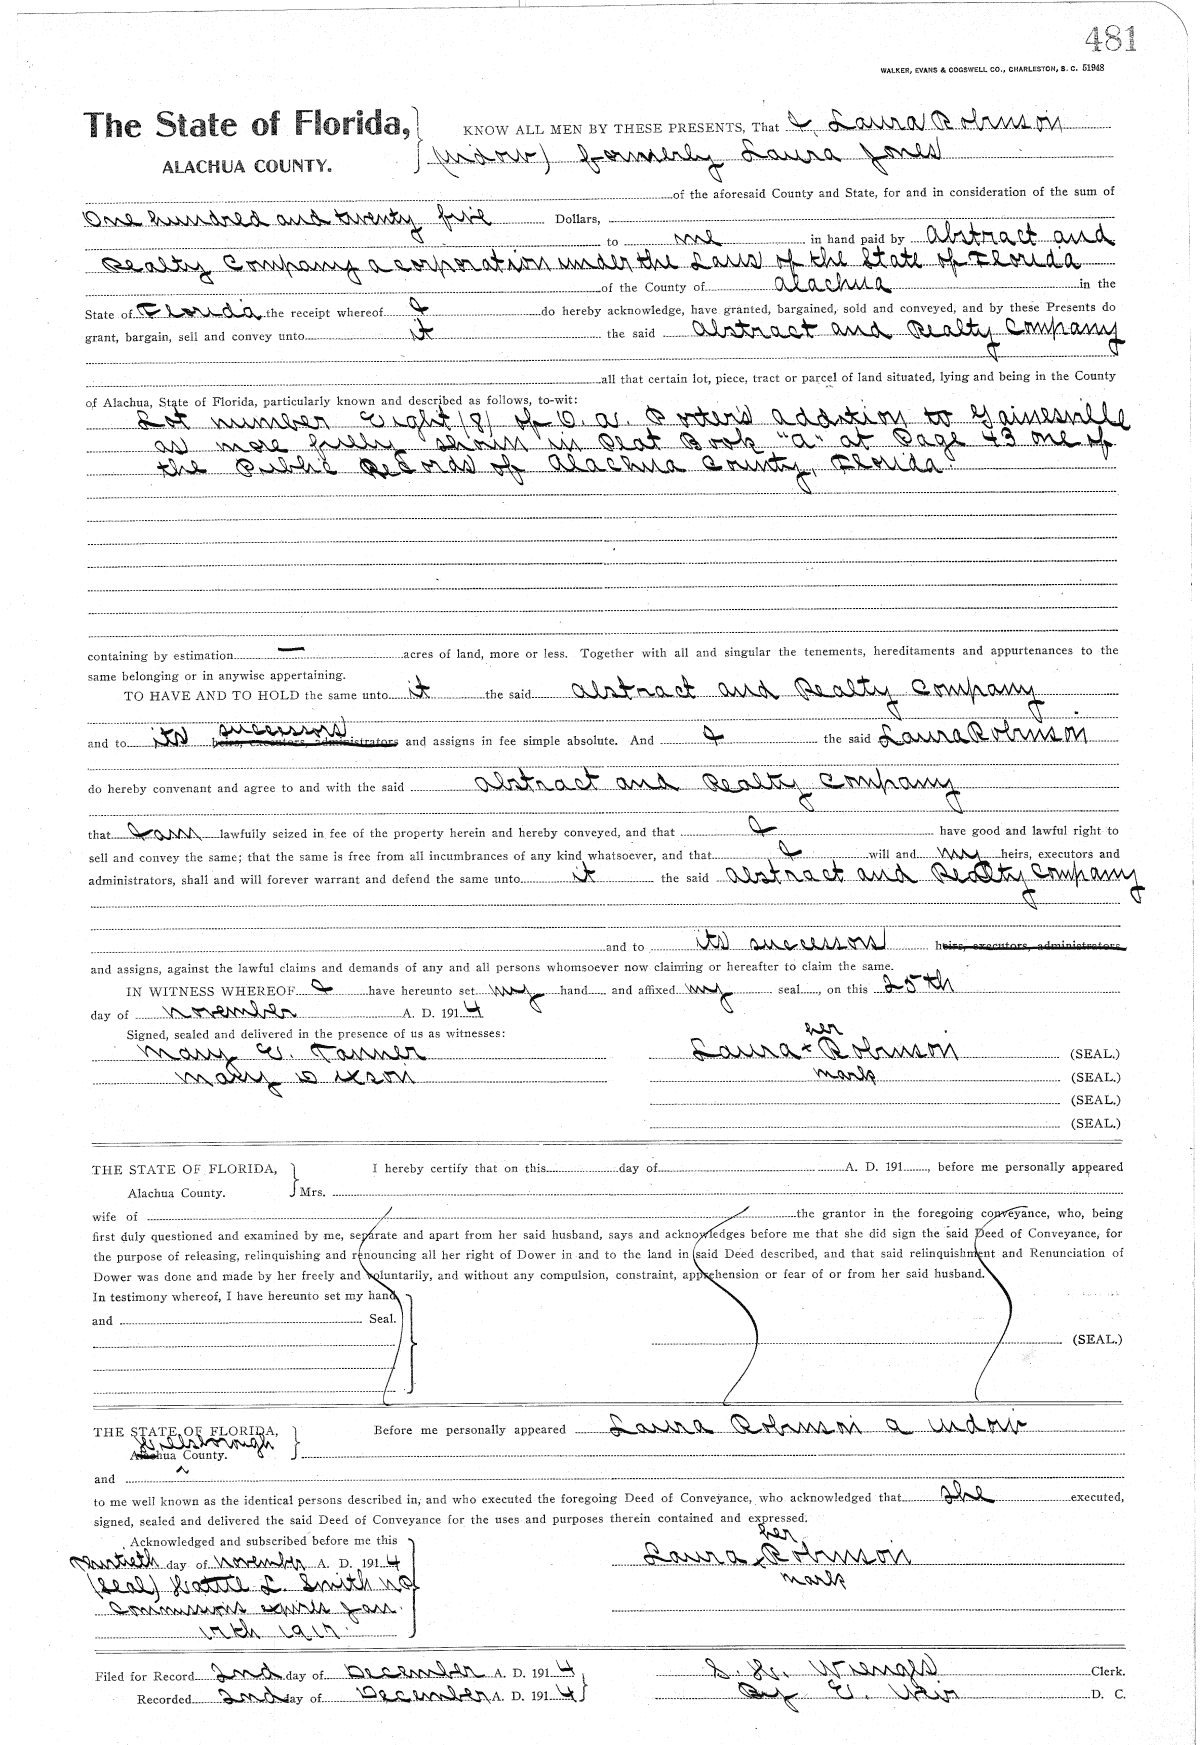 481
WALKER, EVANS & COGSWELL CO., CHARLESTON, S. C. 51948
The State of Florida, KNOW ALL MEN BY THESE PRESENTS, That I, Laura Robinson
ALACHUA COUNTY. (widow) formerly Laura Jones
of the aforesaid County and State, for and in consideration of the sum of
One hundred and twenty five Dollars,
to me in hand paid by Abstract and
Realty Company a corporation under the Laws of the State of Florida
of the County of Alachua in the
State of Florida the receipt whereof I do hereby acknowledge, have granted, bargained, sold and conveyed, and by these Presents do
grant, bargain, sell and convey unto it the said Abstract and Realty Company
all that certain lot, piece, tract or parcel of land situated, lying and being in the County
of Alachua, State of Florida, particularly known and described as follows, to-wit:
Lot number Eight (8) of O. A. Porters addition to Gainesville
as more fully shown in Plat Book "A" at Page 43 one of
the Public Records of Alachua County, Florida.
containing by estimation — acres of land, more or less. Together with all and singular the tenements, hereditaments and appurtenances to the
same belonging or in anywise appertaining.
TO HAVE AND TO HOLD the same unto it the said Abstract and Realty Company
successors
and to its heirs, executors, administrators and assigns in fee simple absolute. And I the said Laura Robinson
do hereby convenant and agree to and with the said Abstract and Realty Company
that I am lawfully seized in fee of the property herein and hereby conveyed, and that I have good and lawful right to
sell and convey the same; that the same is free from all incumbrances of any kind whatsoever, and that I will and my heirs, executors and
administrators, shall and will forever warrant and defend the same unto it the said Abstract and Realty Company
and to its successors heirs, executors, administrators
and assigns, against the lawful claims and demands of any and all persons whomsoever now claiming or hereafter to claim the same.
IN WITNESS WHEREOF I have hereunto set my hand and affixed my seal, on this 25th
day of November A. D. 1914
Signed, sealed and delivered in the presence of us as witnesses:
her
Mary E. Tanner Laura x Robinson (SEAL.)
Mary Dixson mark (SEAL.)
(SEAL.)
(SEAL.)
THE STATE OF FLORIDA, I hereby certify that on this day of A. D. 191, before me personally appeared
Alachua County. Mrs.
wife of the grantor in the foregoing conveyance, who, being
first duly questioned and examined by me, separate and apart from her said husband, says and acknowledges before me that she did sign the said Deed of Conveyance, for
the purpose of releasing, relinquishing and renouncing all her right of Dower in and to the land in said Deed described, and that said relinquishment and Renunciation of
Dower was done and made by her freely and voluntarily, and without any compulsion, constraint, apprehension or fear of or from her said husband.
In testimony whereof, I have hereunto set my hand
and Seal.
(SEAL.)
THE STATE OF FLORIDA, Before me personally appeared Laura Robinson a widow
Hillsborough
Alachua County.
and
to me well known as the identical persons described in, and who executed the foregoing Deed of Conveyance, who acknowledged that she executed,
signed, sealed and delivered the said Deed of Conveyance for the uses and purposes therein contained and expressed.
Acknowledged and subscribed before me this her
Thirtieth day of November A. D. 1914 Laura x Robinson
(Seal) Hattie L. Smith NP mark
Commissions expires Jan.
17th 1917.
Filed for Record 2nd day of December A. D. 1914 S. H. Wienges Clerk.
Recorded 2nd day of December A. D. 1914 By E. Weir D. C.